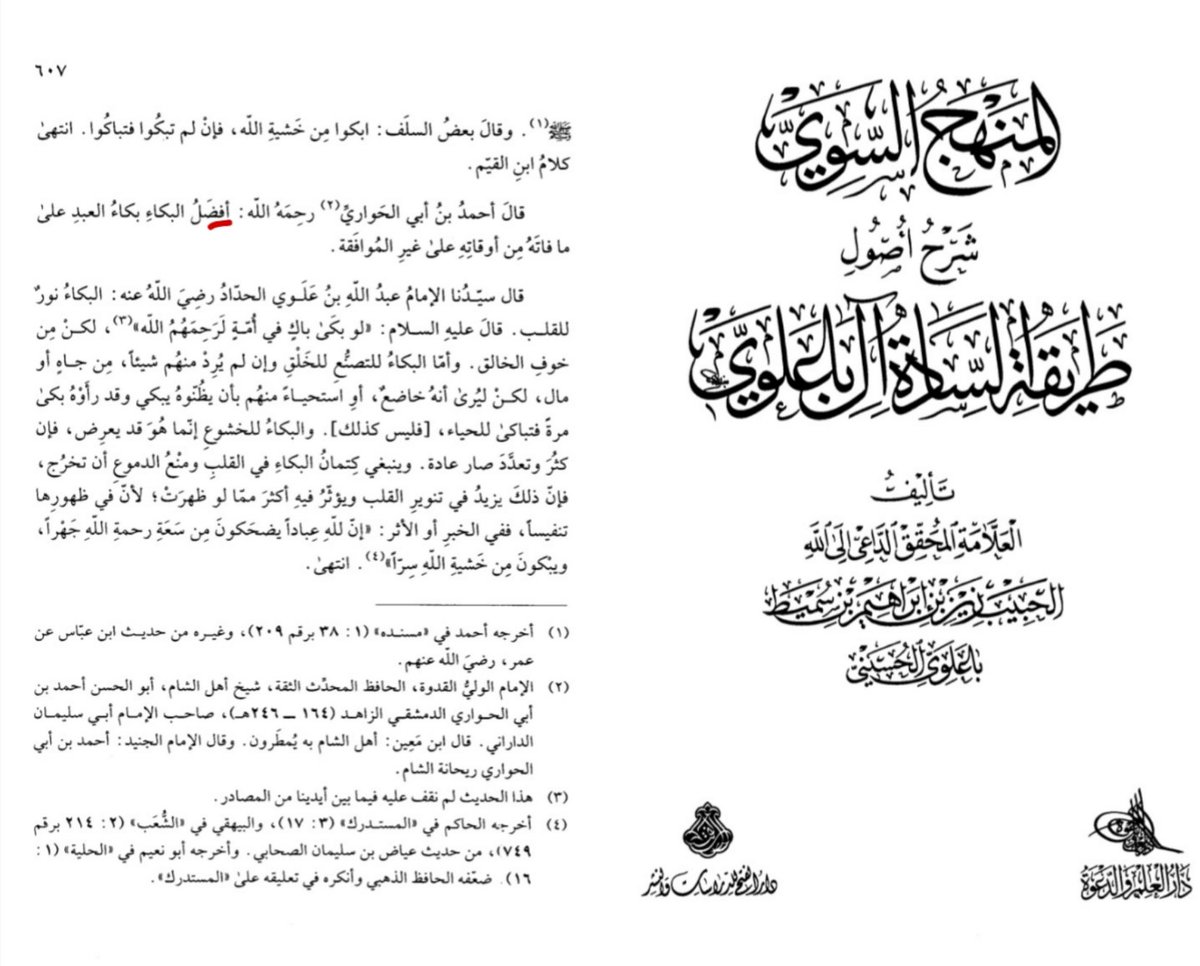 المنهج السوي
شرح أصول
طريقة السادة آل باعلوي
تأليف
العلامة المحقق الداعي إلى الله
الحبيب زين بن إبراهيم بن سميط
باعلوي الحسيني
دار العلم والدعوة
دار الفتح للدراسات والنشر
٦٠٧
ﷺ(١). وقالَ بعضُ السلَف: ابكوا مِن خَشيةِ اللّه، فإنْ لم تبكُوا فتباكُوا. انتهىٰ
كلامُ ابنِ القيّم.
قالَ أحمدُ بنُ أبي الحَواريِّ(٢) رحِمَهُ اللّه: أفضَلُ البكاءِ بكاءُ العبدِ علىٰ
ما فاتَهُ مِن أوقاتِهِ علىٰ غيرِ المُوافَقة.
قال سيّدُنا الإمامُ عبدُ اللّهِ بنُ عَلَوي الحدّادُ رضِيَ اللّهُ عنه: البكاءُ نورٌ
للقلب. قالَ عليهِ السلام: «لو بكىٰ باكٍ في أُمّةٍ لَرَحِمَهُمُ اللّه»(٣)، لكنْ مِن
خوفِ الخالق. وأمّا البكاءُ للتصنُّعِ للخَلْقِ وإن لم يُرِدْ منهُم شيئاً، مِن جاهٍ أو
مال، لكنْ ليُرىٰ أنهُ خاضعٌ، أوِ استحيـاءً منهُم بأن يظُنّوهُ يبكي وقد رأَوْهُ بكىٰ
مرةً فتباكىٰ للحياء، [فليس كذلك]. والبكاءُ للخشوعِ إنّما هُوَ قد يعرِض، فإن
كثُرَ وتعدَّدَ صار عادة. وينبغي كِتمانُ البكاءِ في القلبِ ومنْعُ الدموعِ أن تخرُج،
فإنّ ذلكَ يزيدُ في تنويرِ القلب ويؤثّرُ فيهِ أكثرَ ممّا لو ظهرَتْ؛ لأنّ في ظهورِها
تنفيساً، ففي الخبرِ أو الأثر: «إنّ للّهِ عِباداً يضحَكونَ مِن سَعَةِ رحمةِ اللّهِ جَهْراً،
ويبْكونَ مِن خَشيةِ اللّهِ سِرّاً»(٤). انتهىٰ.
(١) أخرجه أحمد في «مسنده» (١: ٣٨ برقم ٢٠٩)، وغيـره من حديـث ابن عبّاس عن
عمر، رضيَ اللّه عنهم.
(٢) الإمام الوليُّ القدوة، الحافظ المحدِّث الثقة، شيخ أهل الشام، أبو الحسن أحمد بن
أبي الحـواري الدمشقـي الزاهـد (١٦٤ ــ ٢٤٦هـ)، صاحـب الإمـام أبـي سليمـان
الداراني. قال ابن مَعِين: أهل الشام به يُمطَرون. وقال الإمام الجنيد: أحمد بن أبي
الحواري ريحانة الشام.
(٣) هذا الحديث لم نقف عليه فيما بين أيدينا من المصادر.
(٤) أخرجه الحاكم في «المستـدرك» (٣: ١٧)، والبيهقي في «الشُّعَب» (٢: ٢١٤ برقم
٧٤٩)، من حديث عياض بن سليمان الصحابي. وأخرجه أبو نعيم في «الحلية» (١:
١٦). ضعّفه الحافظ الذهبي وأنكره في تعليقه علىٰ «المستدرك».